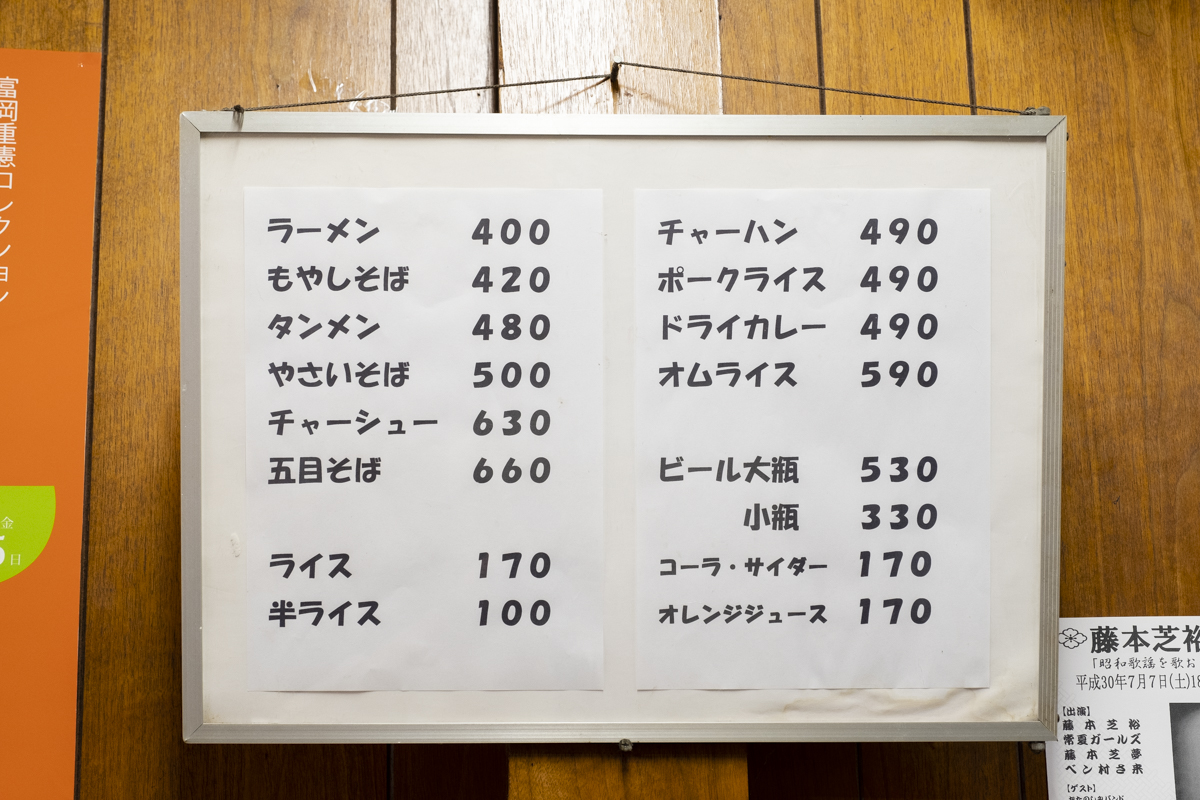 富岡重憲コレクション
金
5日
ラーメン 400
もやしそば 420
タンメン 480
やさいそば 500
チャーシュー 630
五目そば 660
ライス 170
半ライス 100
チャーハン 490
ポークライス 490
ドライカレー 490
オムライス 590
ビール大瓶 530
小瓶 330
コーラ・サイダー 170
オレンジジュース 170
藤本芝裕
「昭和歌謡を歌お
平成30年7月7日(土)18
【出演】
藤本芝裕
常夏ガールズ
藤本芝夢
ペン村さ来
【ゲスト】